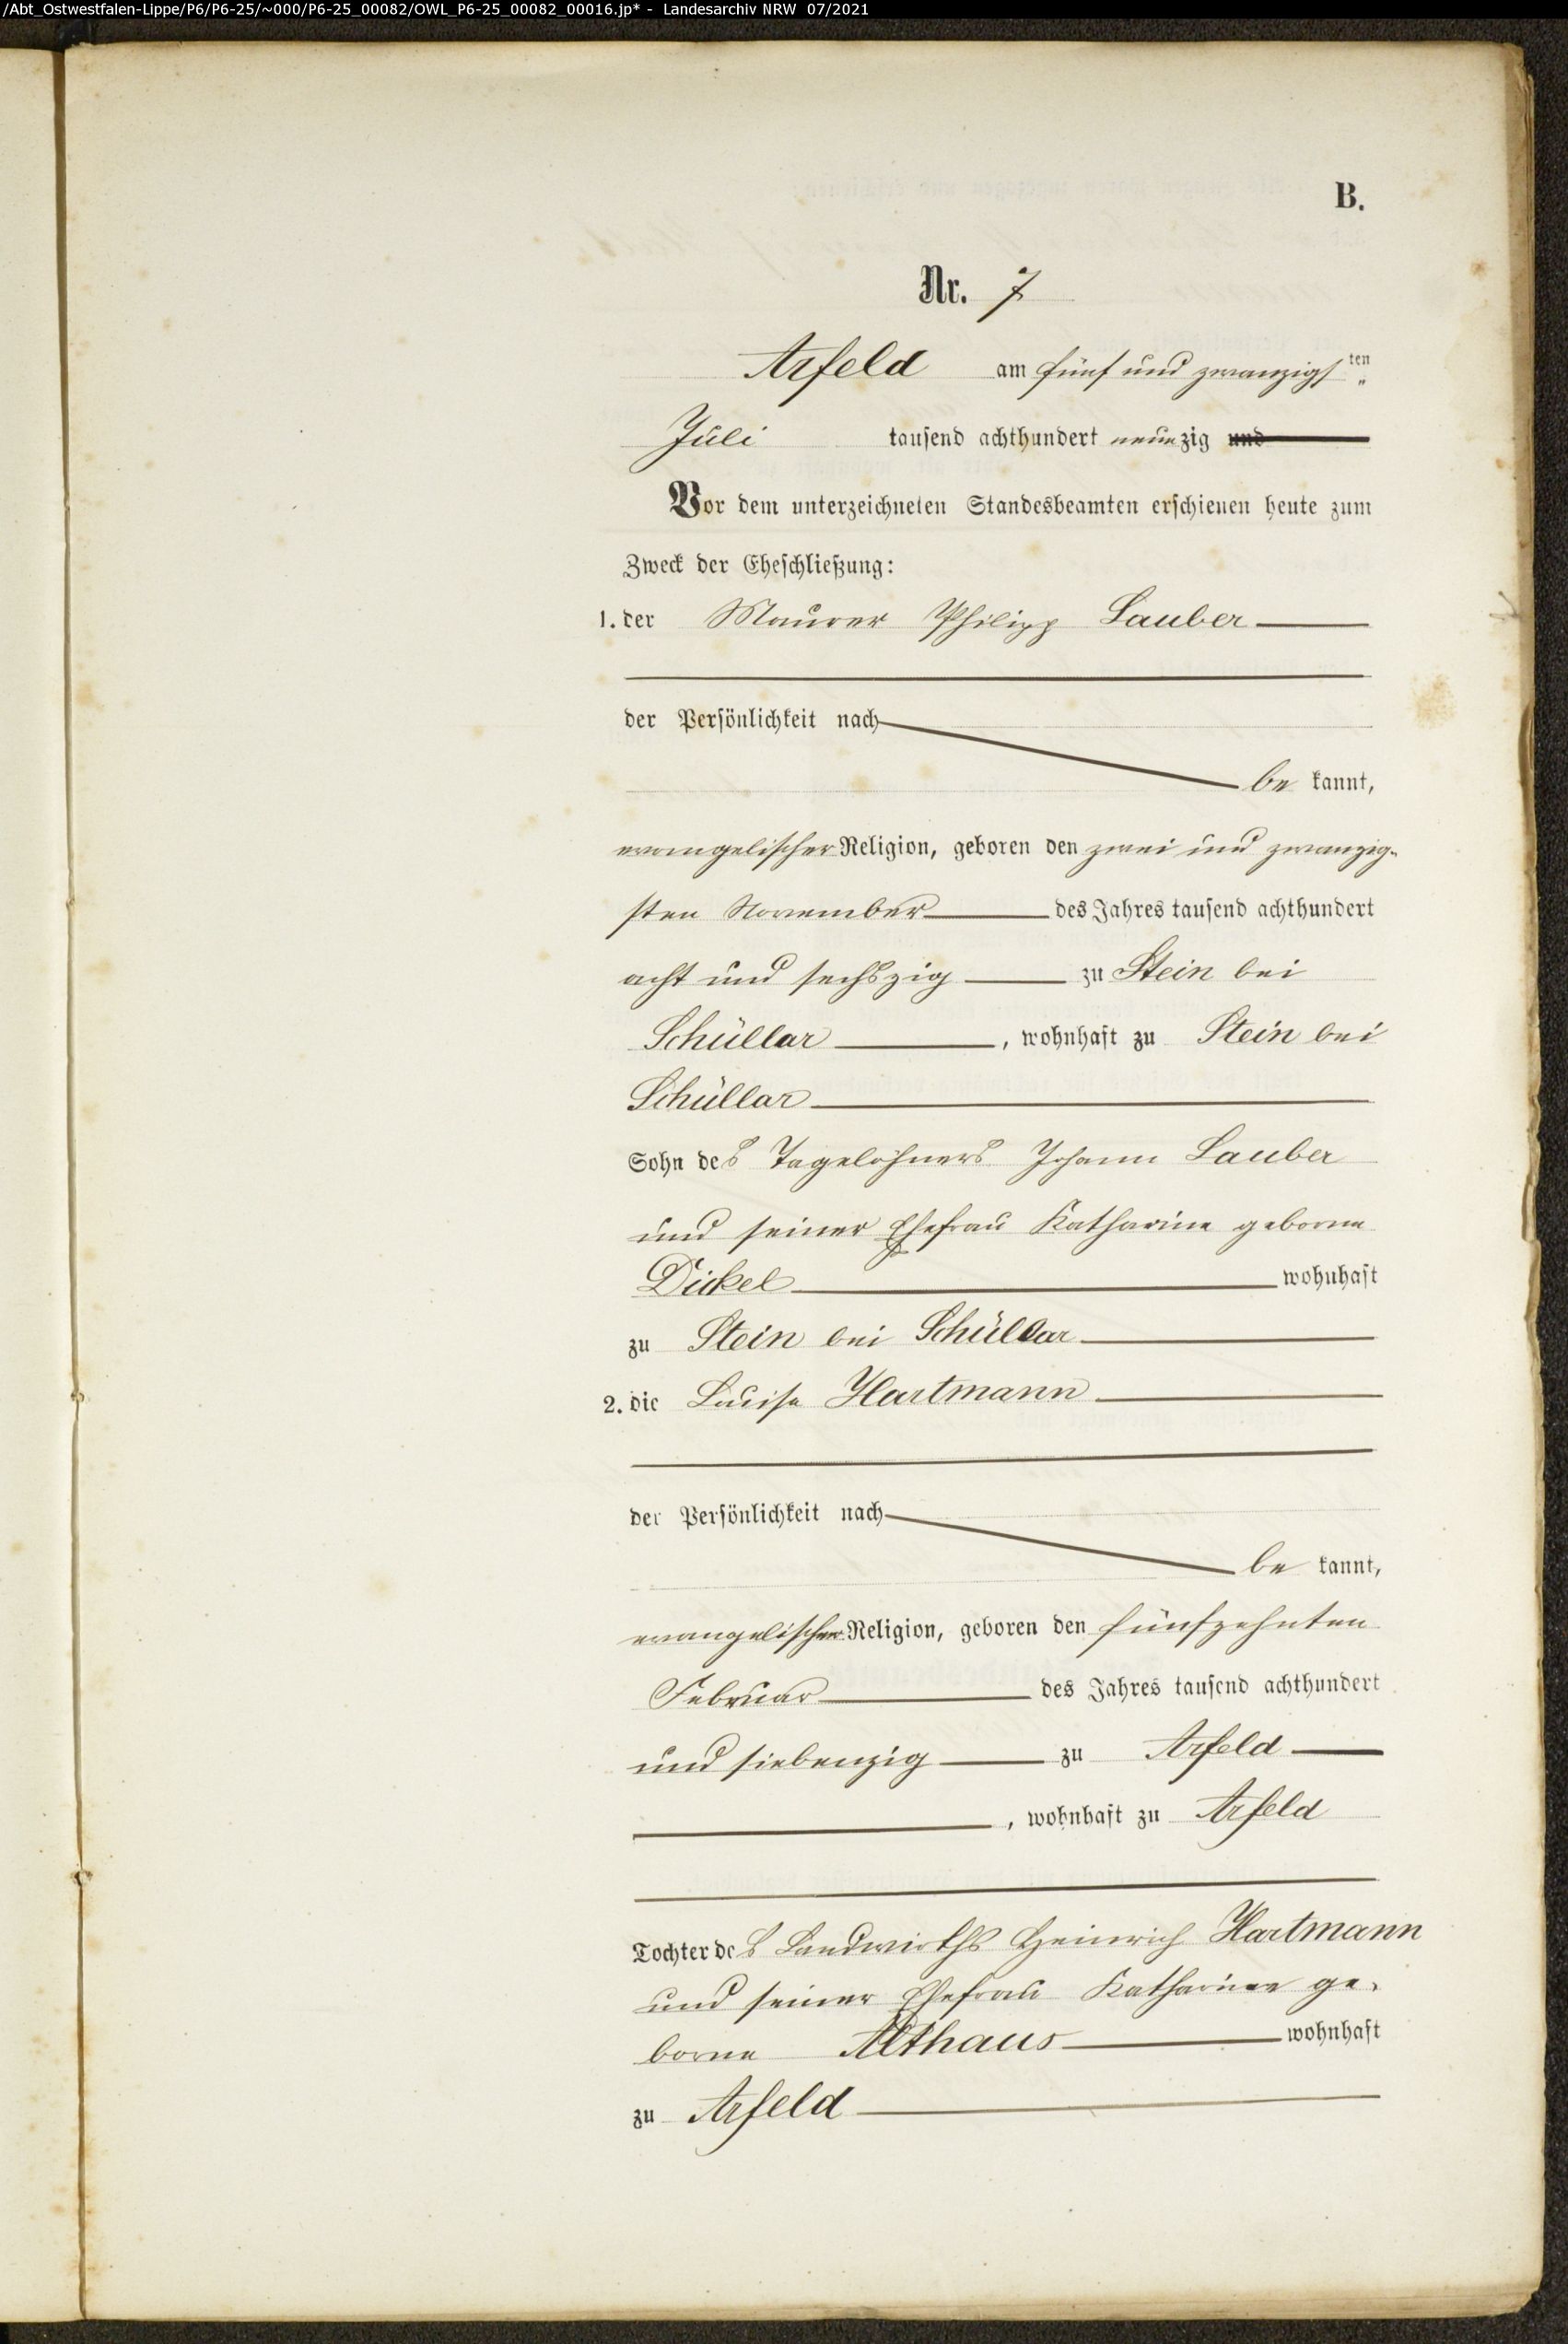 /Abt_Ostwestfalen-Lippe/P6/P6-25/~000/P6-25_00082/OWL_P6-25_00082_00016.jp* - Landesarchiv NRW 07/2021
B.
Nr. 7
Arfeld am fünf und zwanzigsten
Juli tausend achthundert neunzig und
Vor dem unterzeichneten Standesbeamten erschienen heute zum
Zweck der Eheschließung:
1. der Maurer Philipp Lauber
der Persönlichkeit nach
be kannt,
evangelischer Religion, geboren den zwei und zwanzig-
sten November des Jahres tausend achthundert
acht und sechszig zu Stein bei
Schüllar, wohnhaft zu Stein bei
Schüllar
Sohn des Tagelöhners Johann Lauber
und seiner Ehefrau Katharine geborne
Dickel wohnhaft
zu Stein bei Schüllar
2. die Louise Hartmann
der Persönlichkeit nach
be kannt,
evangelischer Religion, geboren den fünfzehnten
Februar des Jahres tausend achthundert
und siebenzig zu Arfeld
, wohnhaft zu Arfeld
Tochter des Landwirths Heinrich Hartmann
und seiner Ehefrau Katharine ge-
borne Althaus wohnhaft
zu Arfeld